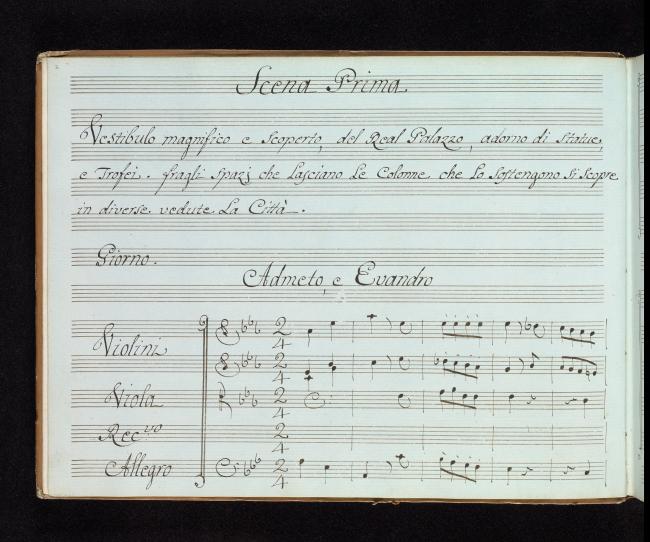 Scena Prima
Vestibulo magnifico e scoperto, del Real Palazzo, adorno di Statue,
e Trofei. fragli spazj che lasciano le Colonne che lo sostengono si scopre
in diverse vedute la Città.
Giorno.
Admeto, e Evandro
Violini
2 4
2 4
Viola
2 4
Rec.vo
2 4
Allegro
2 4